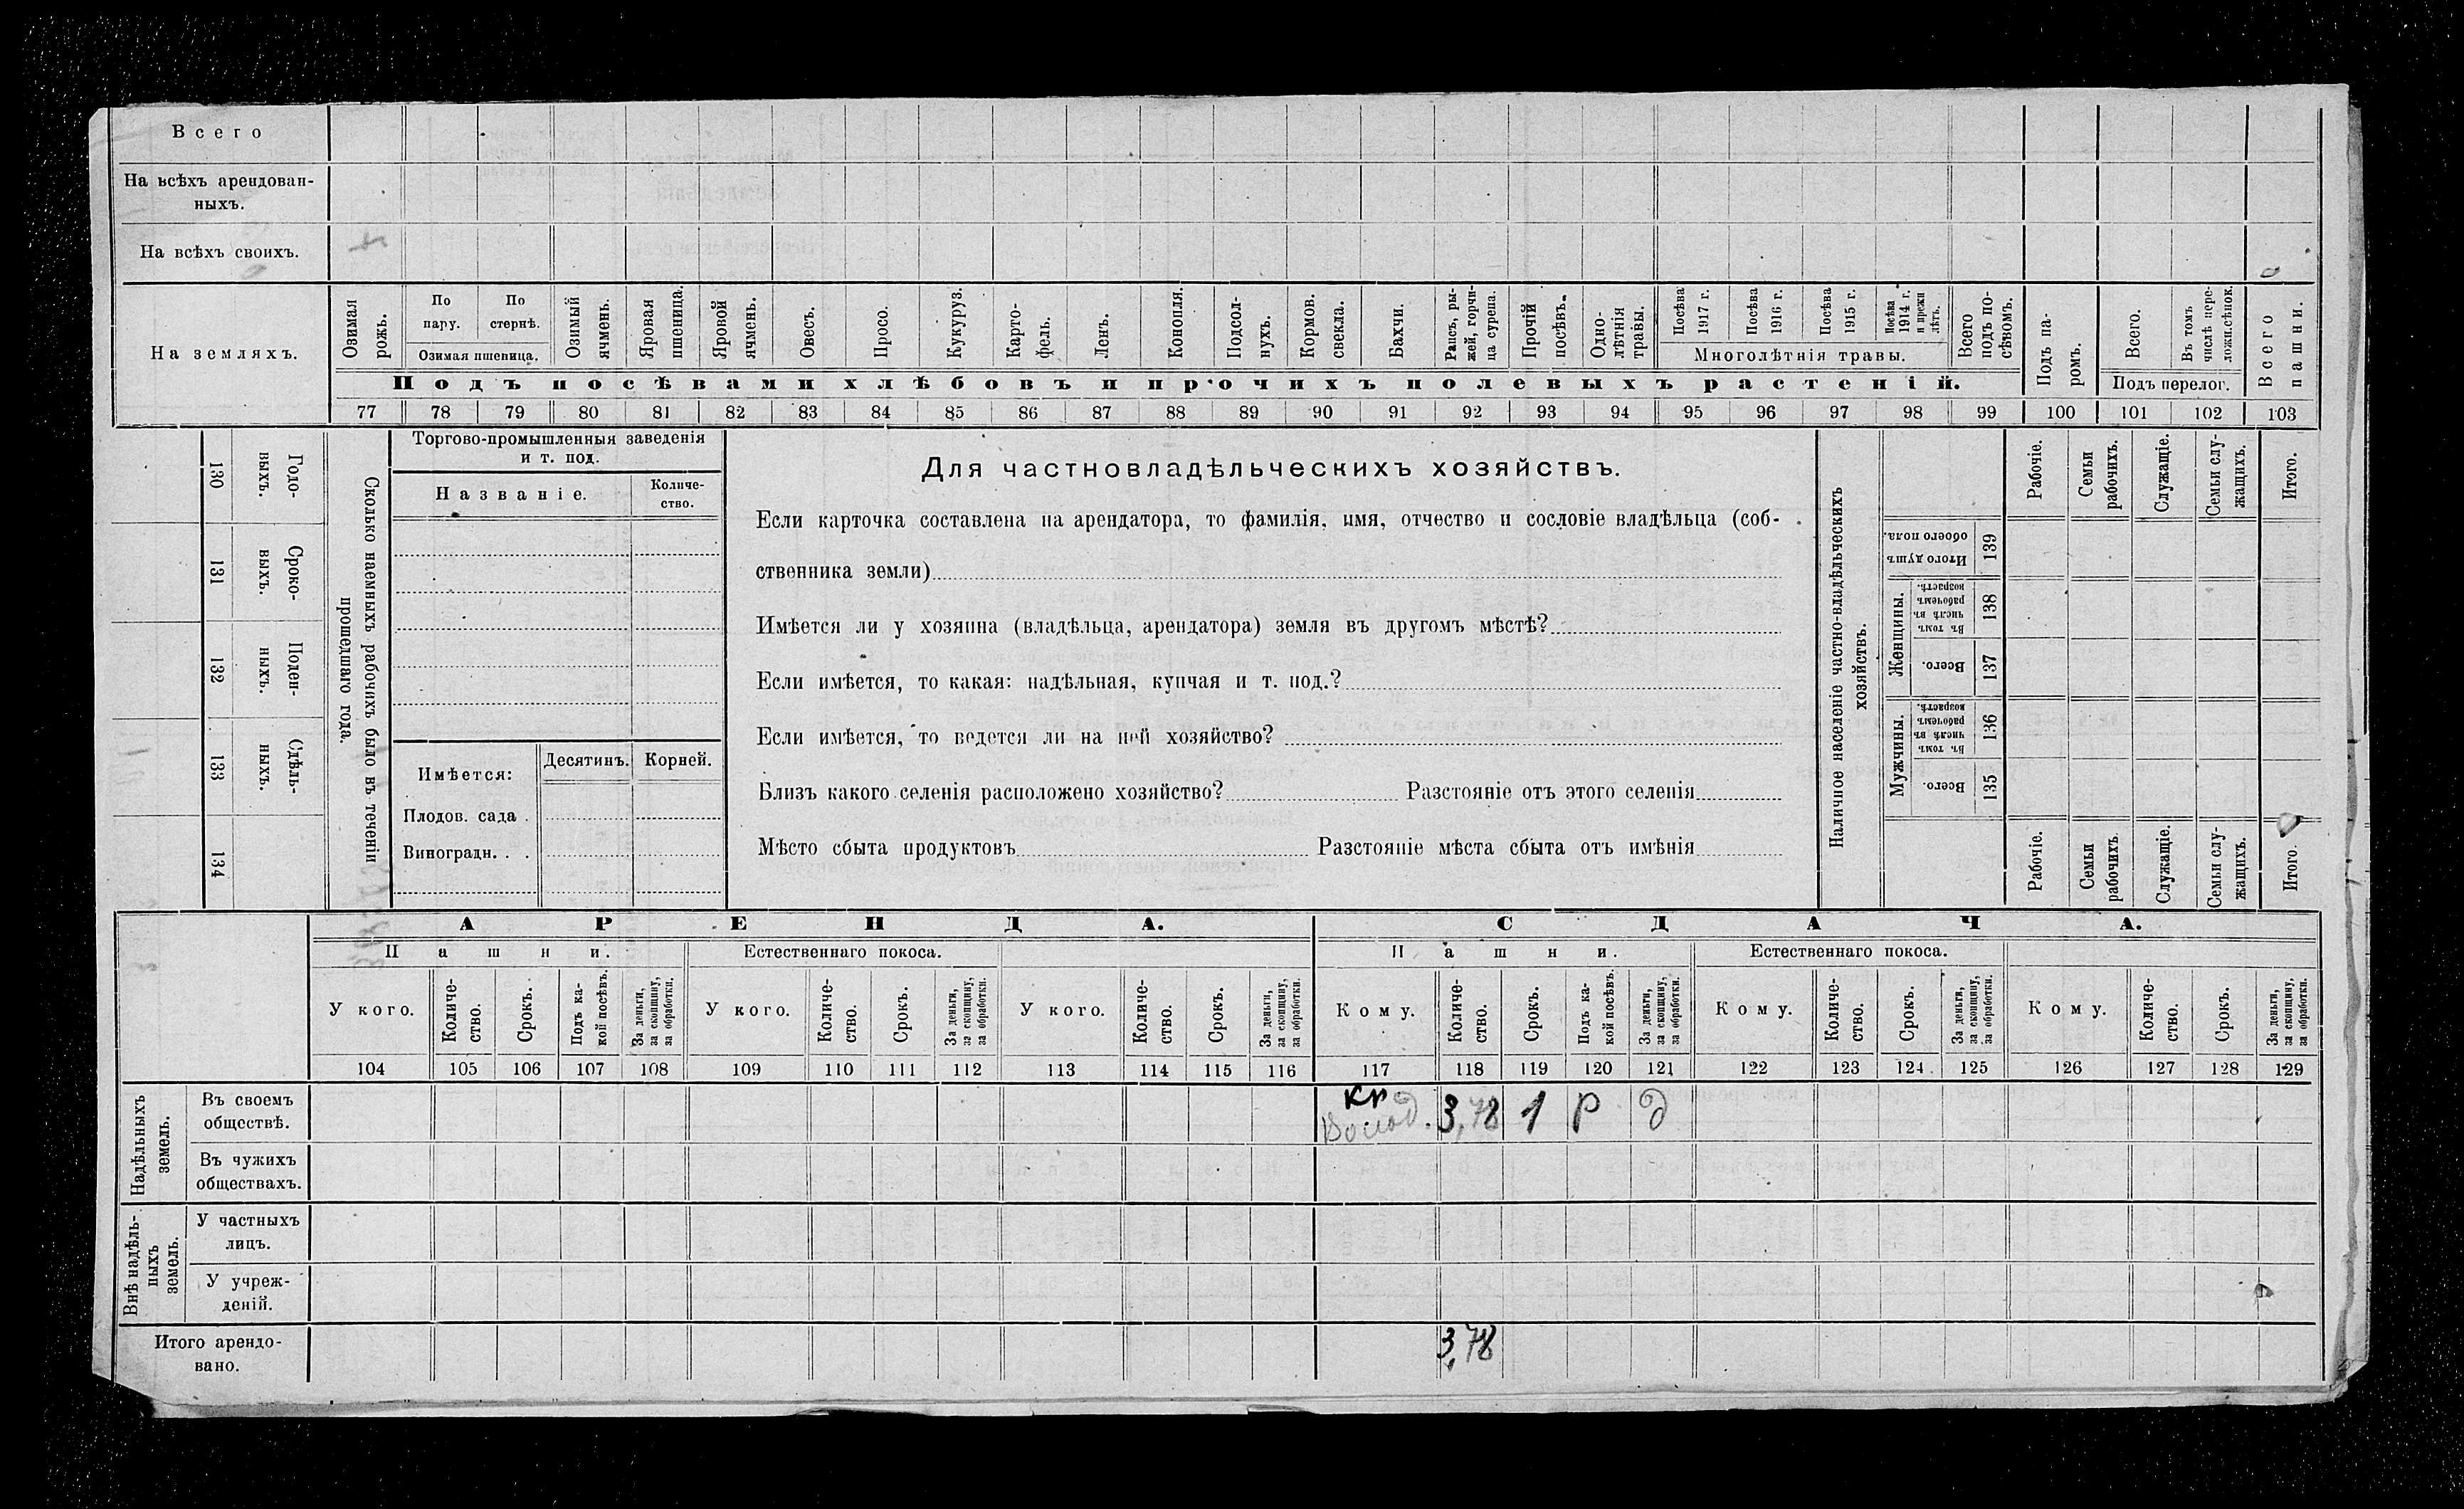 Всего
На всѣхъ арендован-
ныхъ.
На всѣхъ своихъ.
На земляхъ.
Озимая рожь.
По пару.
По стернѣ.
Озимая пшеница.
Озимый ячмень.
Яровая пшеница.
Яровой ячмень.
Овесъ.
Просо.
Кукуруз.
Карто-
фель.
Ленъ.
Конопля.
Подсол-
нухъ.
Кормов. свекла.
Бахчи.
Рапсъ, ры-
жей, горчи-
ца сурепа.
Прочій посѣвъ.
Одно-
лѣтнія травы.
Посѣва 1917 г.
Посѣва 1916 г.
Посѣва 1915 г.
Посѣва 1914 г. и прежн лѣтъ.
Многолѣтнія травы.
Всего подъ по-
сѣвомъ.
Подъ посѣвами хлѣбовъ и прочихъ полевыхъ растеній.
Подъ па-
ромъ.
Всего.
Въ томъ числѣ пере-
ложн.сѣнок.
Подъ перелог.
Всего пашни.
77 78 79 80 81 82 83 84 85 86 87 88 89 90 91 92 93 94 95 96 97 98 99 100 101 102 103
130 Годо-
выхъ.
131 Сроко-
выхъ.
132 Поден-
ныхъ.
133 Сдѣль-
ныхъ.
134
Сколько наемныхъ рабочихъ было въ теченіи
прошедшаго года.
Торгово-промышленныя заведенія
и т. под.
Названіе.
Количе-
ство.
Имѣется:
Десятинъ.
Корней.
Плодов. сада .
Виноградн. . .
Для частновладѣльческихъ хозяйствъ.
Если карточка составлена на арендатора, то фамилія, имя, отчество и сословіе владѣльца (соб-
ственника земли)
Имѣется ли у хозяина (владѣльца, арендатора) земля въ другомъ мѣстѣ?
Если имѣется, то какая: надѣльная, купчая и т. под.?
Если имѣется, то ведется ли на ней хозяйство?
Близъ какого селенія расположено хозяйство? Разстояніе отъ этого селенія
Мѣсто сбыта продуктовъ Разстояніе мѣста сбыта отъ имѣнія
Наличное населеніе частно-владѣльческихъ
хозяйствъ.
Рабочіе.
Семьи рабочихъ.
Служащіе.
Семьи слу-
жащихъ.
Итого.
Итого душъ обоего пола. 139
Женщины.
Въ томъ числѣ въ рабочемъ возрастѣ. 138
Всего. 137
Мужчины.
Въ томъ числѣ въ рабочемъ возрастѣ. 136
Всего. 135
Рабочіе.
Семьи рабочихъ
Служащіе.
Семьи слу-
жащихъ.
Итого.
АРЕНДА. СДАЧА.
Пашни. Естественнаго покоса. Пашни. Естественнаго покоса.
У кого.
Количе-
ство.
Срокъ.
Подъ ка-
кой посѣвъ.
За деньги, за скопщину, за обработки.
У кого.
Количе-
ство.
Срокъ.
За деньги, за скопщину, за обработки.
У кого.
Количе-
ство.
Срокъ.
За деньги, за скопщину, за обработки.
Кому.
Количе-
ство.
Срокъ.
Подъ ка-
кой посѣвъ.
За деньги, за скопщину, за обработки.
Кому.
Количе-
ство.
Срокъ.
За деньги, за скопщину, за обработки.
Кому.
Количе-
ство.
Срокъ.
За деньги, за скопщину, за обработки.
104 105 106 107 108 109 110 111 112 113 114 115 116 117 118 119 120 121 122 123 124 125 126 127 128 129
Надѣльныхъ
земель.
Въ своемъ
обществѣ.
кр
3,78 1 Р д
Въ чужихъ
обществахъ.
Внѣ надѣль-
ныхъ
земель.
У частныхъ
лицъ.
У учреж-
деній.
Итого арендо-
вано.
3,78